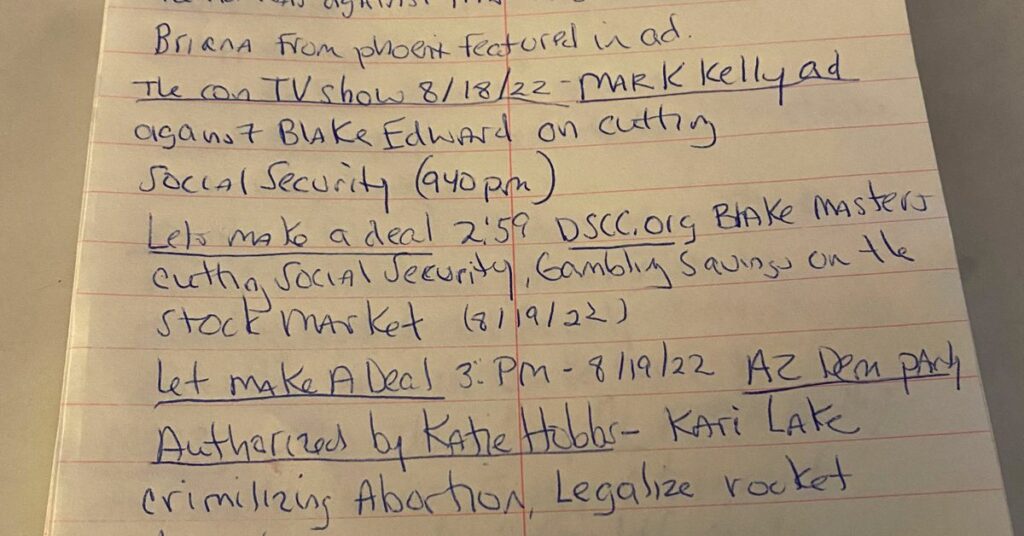 against
Briana from phoenix featured in ad.
The con TV show 8/18/22 - MARK Kelly ad
against BLAKE Edward on cutting
Social Security (940 pm)
Lets make a deal 2:59 DSCC.org Blake Masters
cutting Social Security, Gambling Savings on the
Stock MARKet (8/19/22)
Let MAKE A DeAl 3: PM - 8/19/22 AZ Dem pArty
Authorized by KAtie Hobbs - KAri LAKe
crimilizing Abortion, Legalize rocket